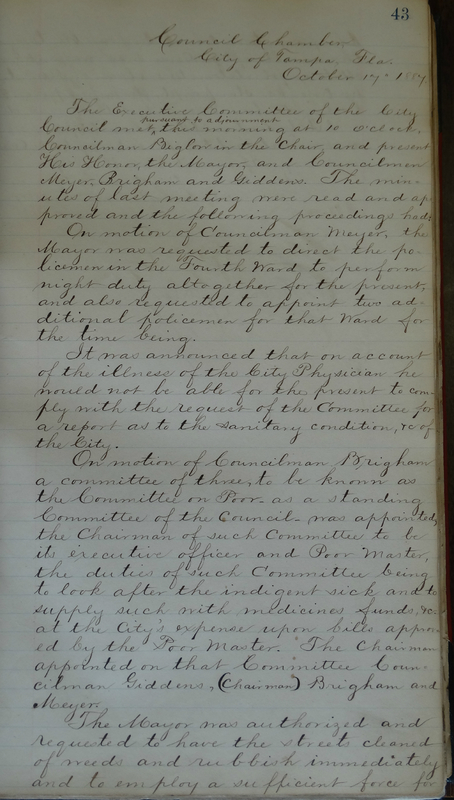 43
Council Chamber
City of Tampa, Fla.
October 17th 1887
The Executive Committee of the City
pursuant to adjournment
Council met, this morning at 10 o'clock,
Councilman Biglow in the Chair, and present
His Honor, the Mayor, and Councilmen
Meyer, Brigham and Giddens. The min-
utes of last meeting were read and ap-
proved and the following proceedings had:
On motion of Councilman Meyer, the
Mayor was requested to direct the po-
licemen in the Fourth Ward to perform
night duty altogether for the present,
and also requested to appoint two ad-
ditional policemen for that Ward for
the time being.
It was announced that on account
of the illness of the City Physician he
would not be able for the present to com-
ply with the request of the Committee for
a report as to the sanitary condition, &c of
the City.
On motion of Councilman Brigham
a committee of three, to be known as
the Committee on Poor - as a standing
Committee of the Council - was appointed,
the Chairman of such Committee to be
its executive officer and Poor Master,
the duties of such Committee being
to look after the indigent sick and to
supply such with medicines funds, &c
at the City's expense upon bills approv-
ed by the Poor Master. The Chairman
appointed on that Committee Coun-
cilman Giddens, (Chairman) Brigham and
Meyer.
The Mayor was authorized and
requested to have the streets cleaned
of weeds and rubbish immediately
and to employ a sufficient force for